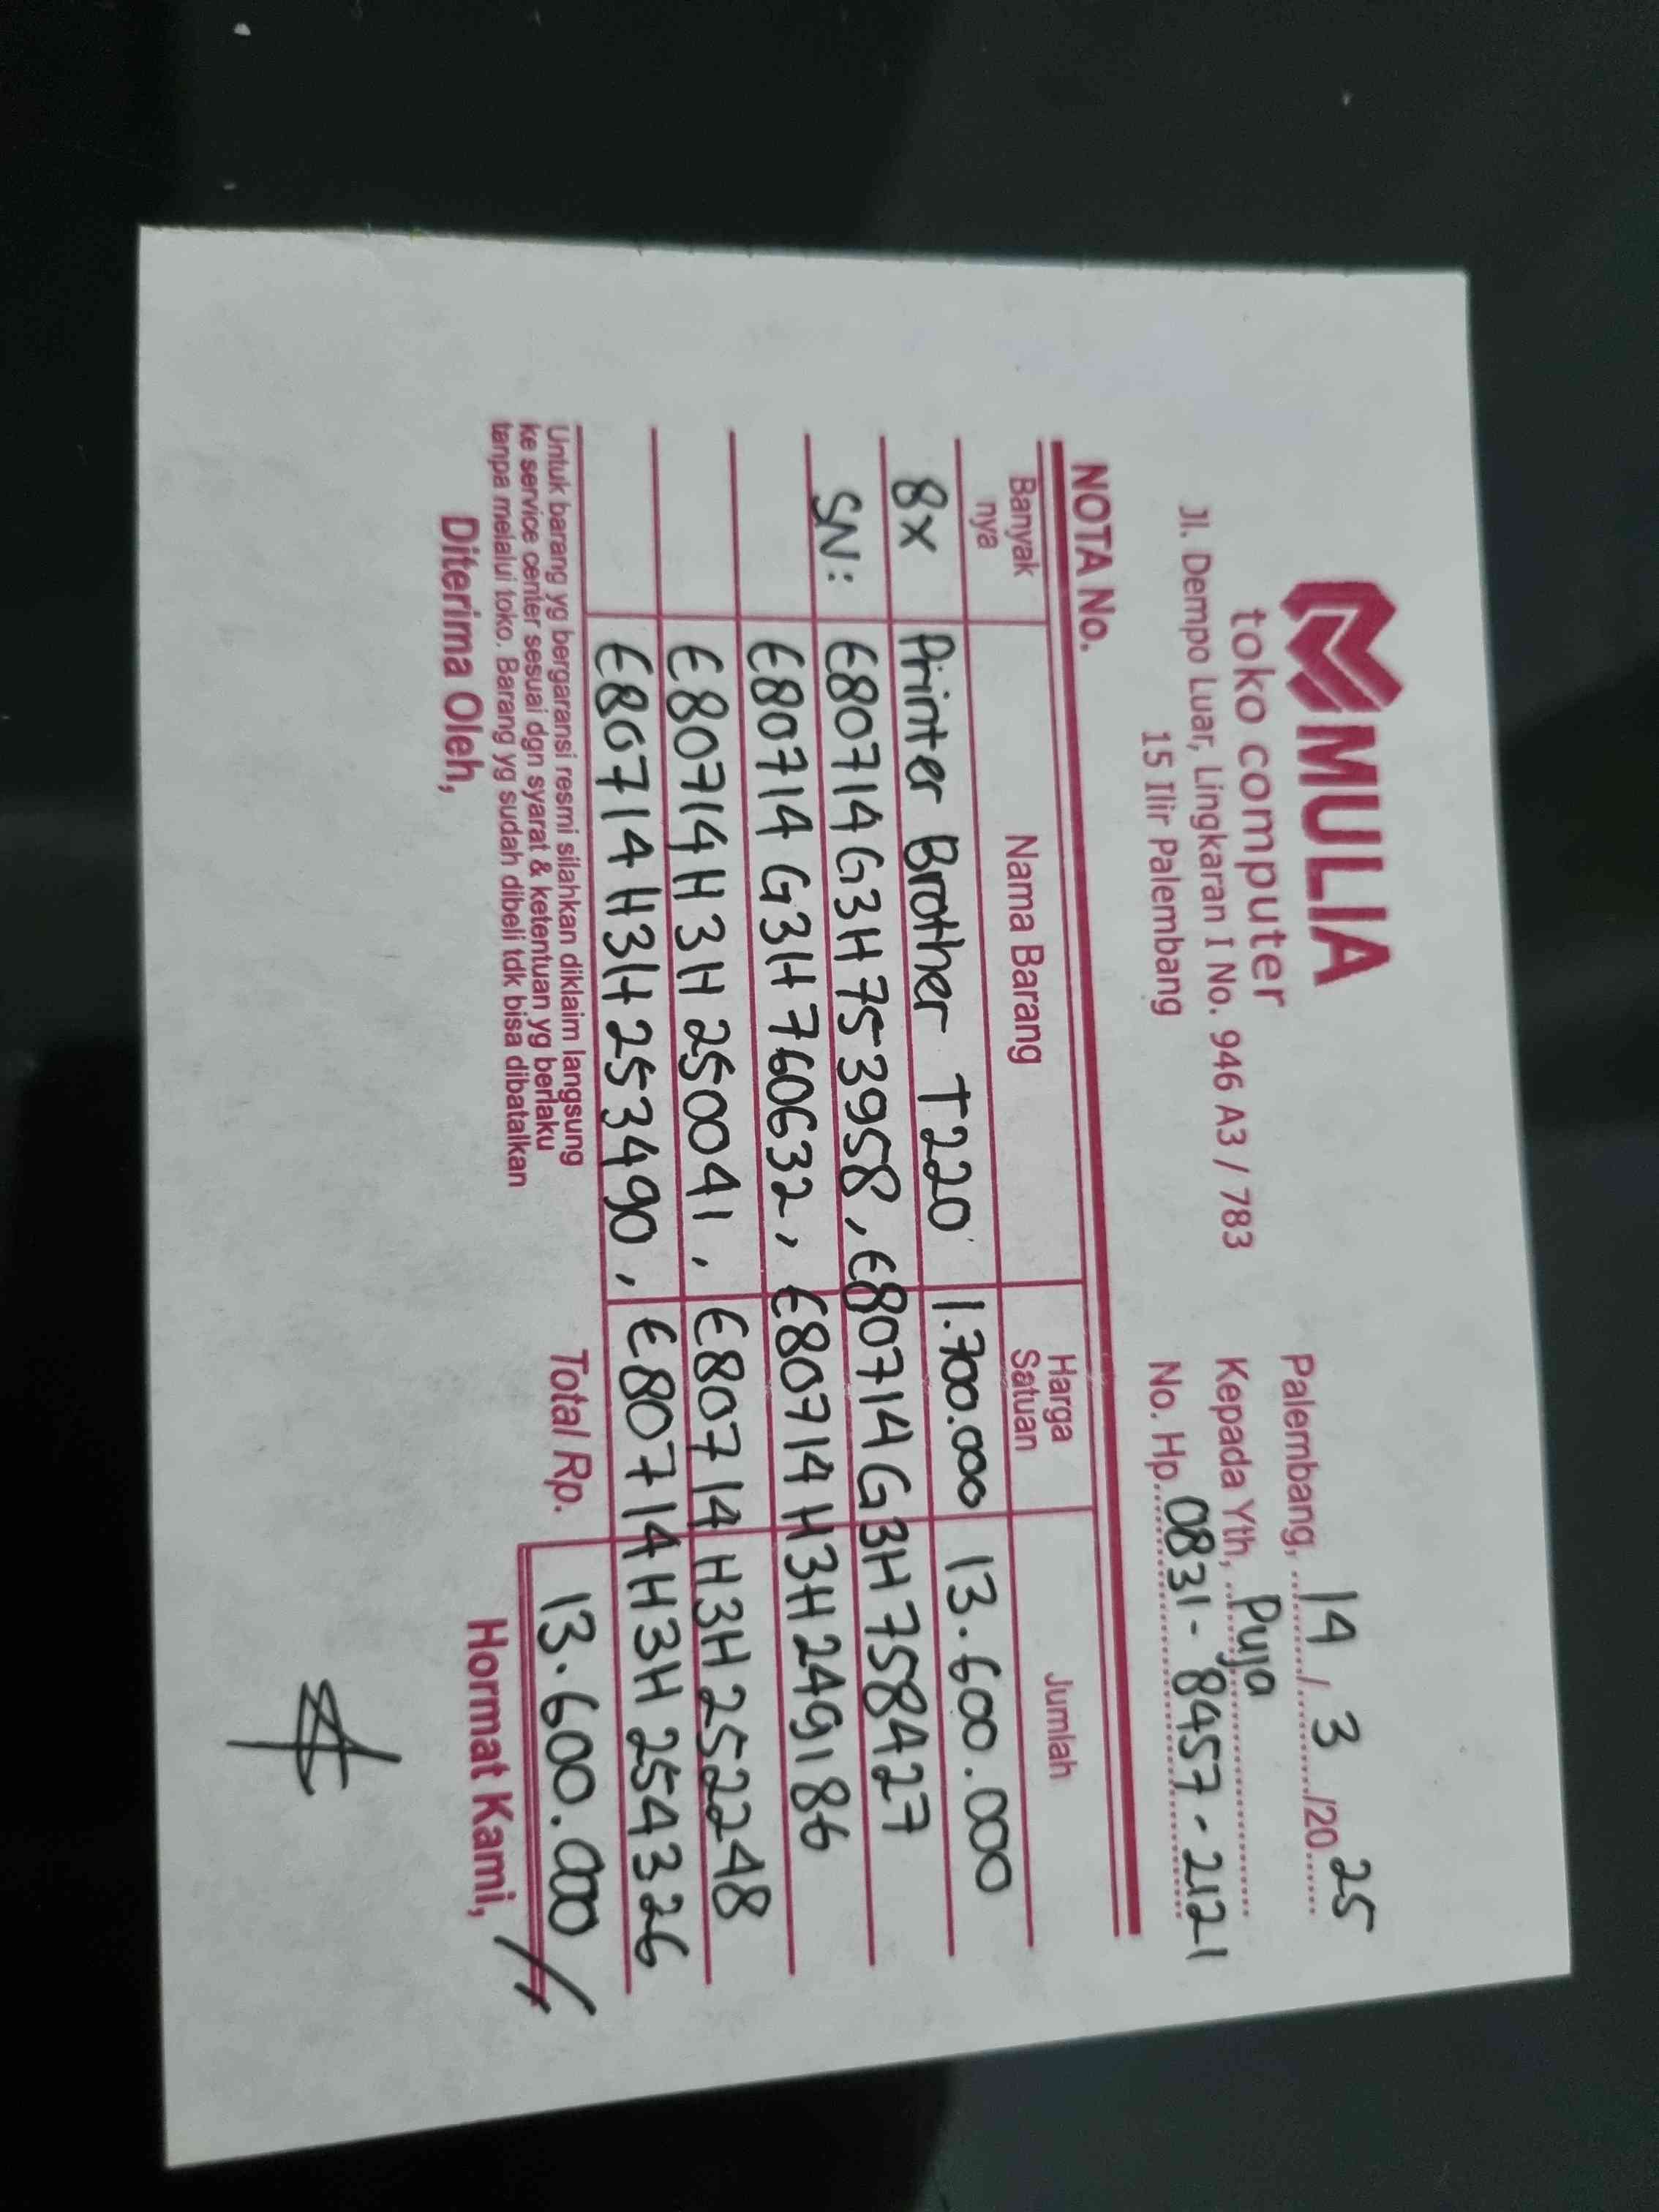 MULIA
toko computer
Jl. Dempo Luar, Lingkaran I No. 946 A3 / 783
15 Ilir Palembang
Palembang, 14 / 3 /20 25
Kepada Yth, Puja
No. Hp. 0831-8457-2121
NOTA No.
Banyak nya Nama Barang Harga Satuan Jumlah
8x Printer Brother T220 1.700.000 13.600.000
SN: E80714G3H753958, E80714G3H758427
E80714G3H760632, E80714H3H249186
E80714H3H250041, E80714H3H252248
E80714H3H253490, E80714H3H254326
Untuk barang yg bergaransi resmi silahkan diklaim langsung
ke service center sesuai dgn syarat & ketentuan yg berlaku
tanpa melalui toko. Barang yg sudah dibeli tdk bisa dibatalkan
Total Rp. 13.600.000
Diterima Oleh, Hormat Kami,